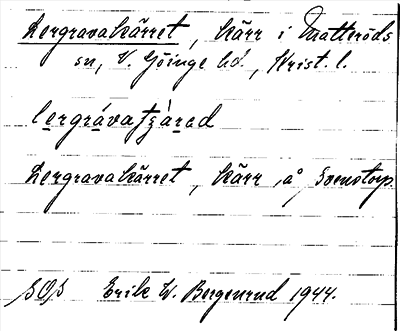 Lergravakärret, kärr i Matteröds
sn, V. Göinge hd., Krist. l.
Lergravakärret, kärr, å Svenstorp.
SOS Erik W. Bergenrud 1944.